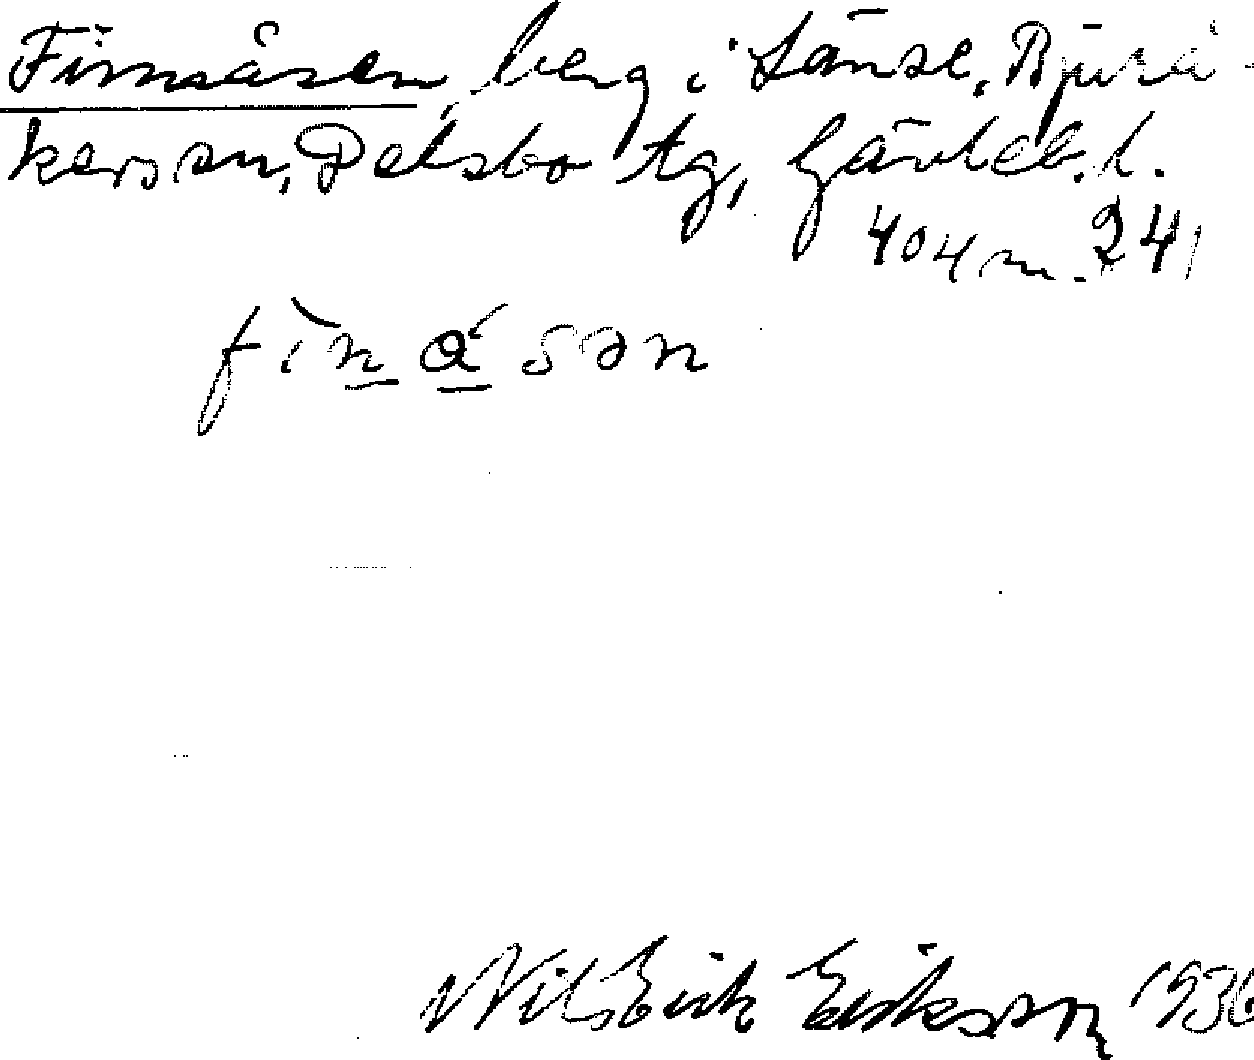 Finnåsen, berg i Länse, Bjurå-
kers sn, Delsbo tg, Gävleb. l.
404 m. 241
fìnásən
Nils Erik Eriksson 1936